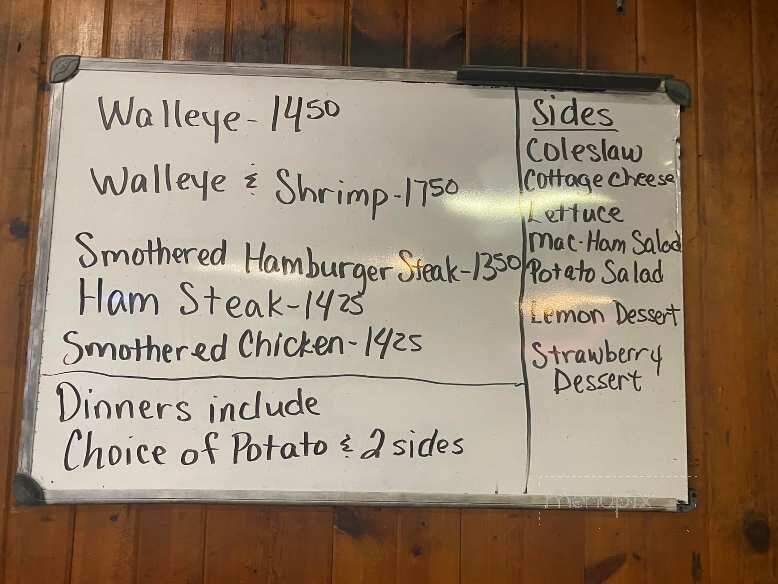 Walleye - 14 50
Walleye & Shrimp - 17 50
Smothered Hamburger Steak - 13 50
Ham Steak - 14 25
Smothered Chicken - 14 25
Dinners include
Choice of Potato & 2 sides
Sides
Coleslaw
Cottage Cheese
Lettuce
Mac-Ham Salad
Potato Salad
Lemon Dessert
Strawberry
Dessert
menupix